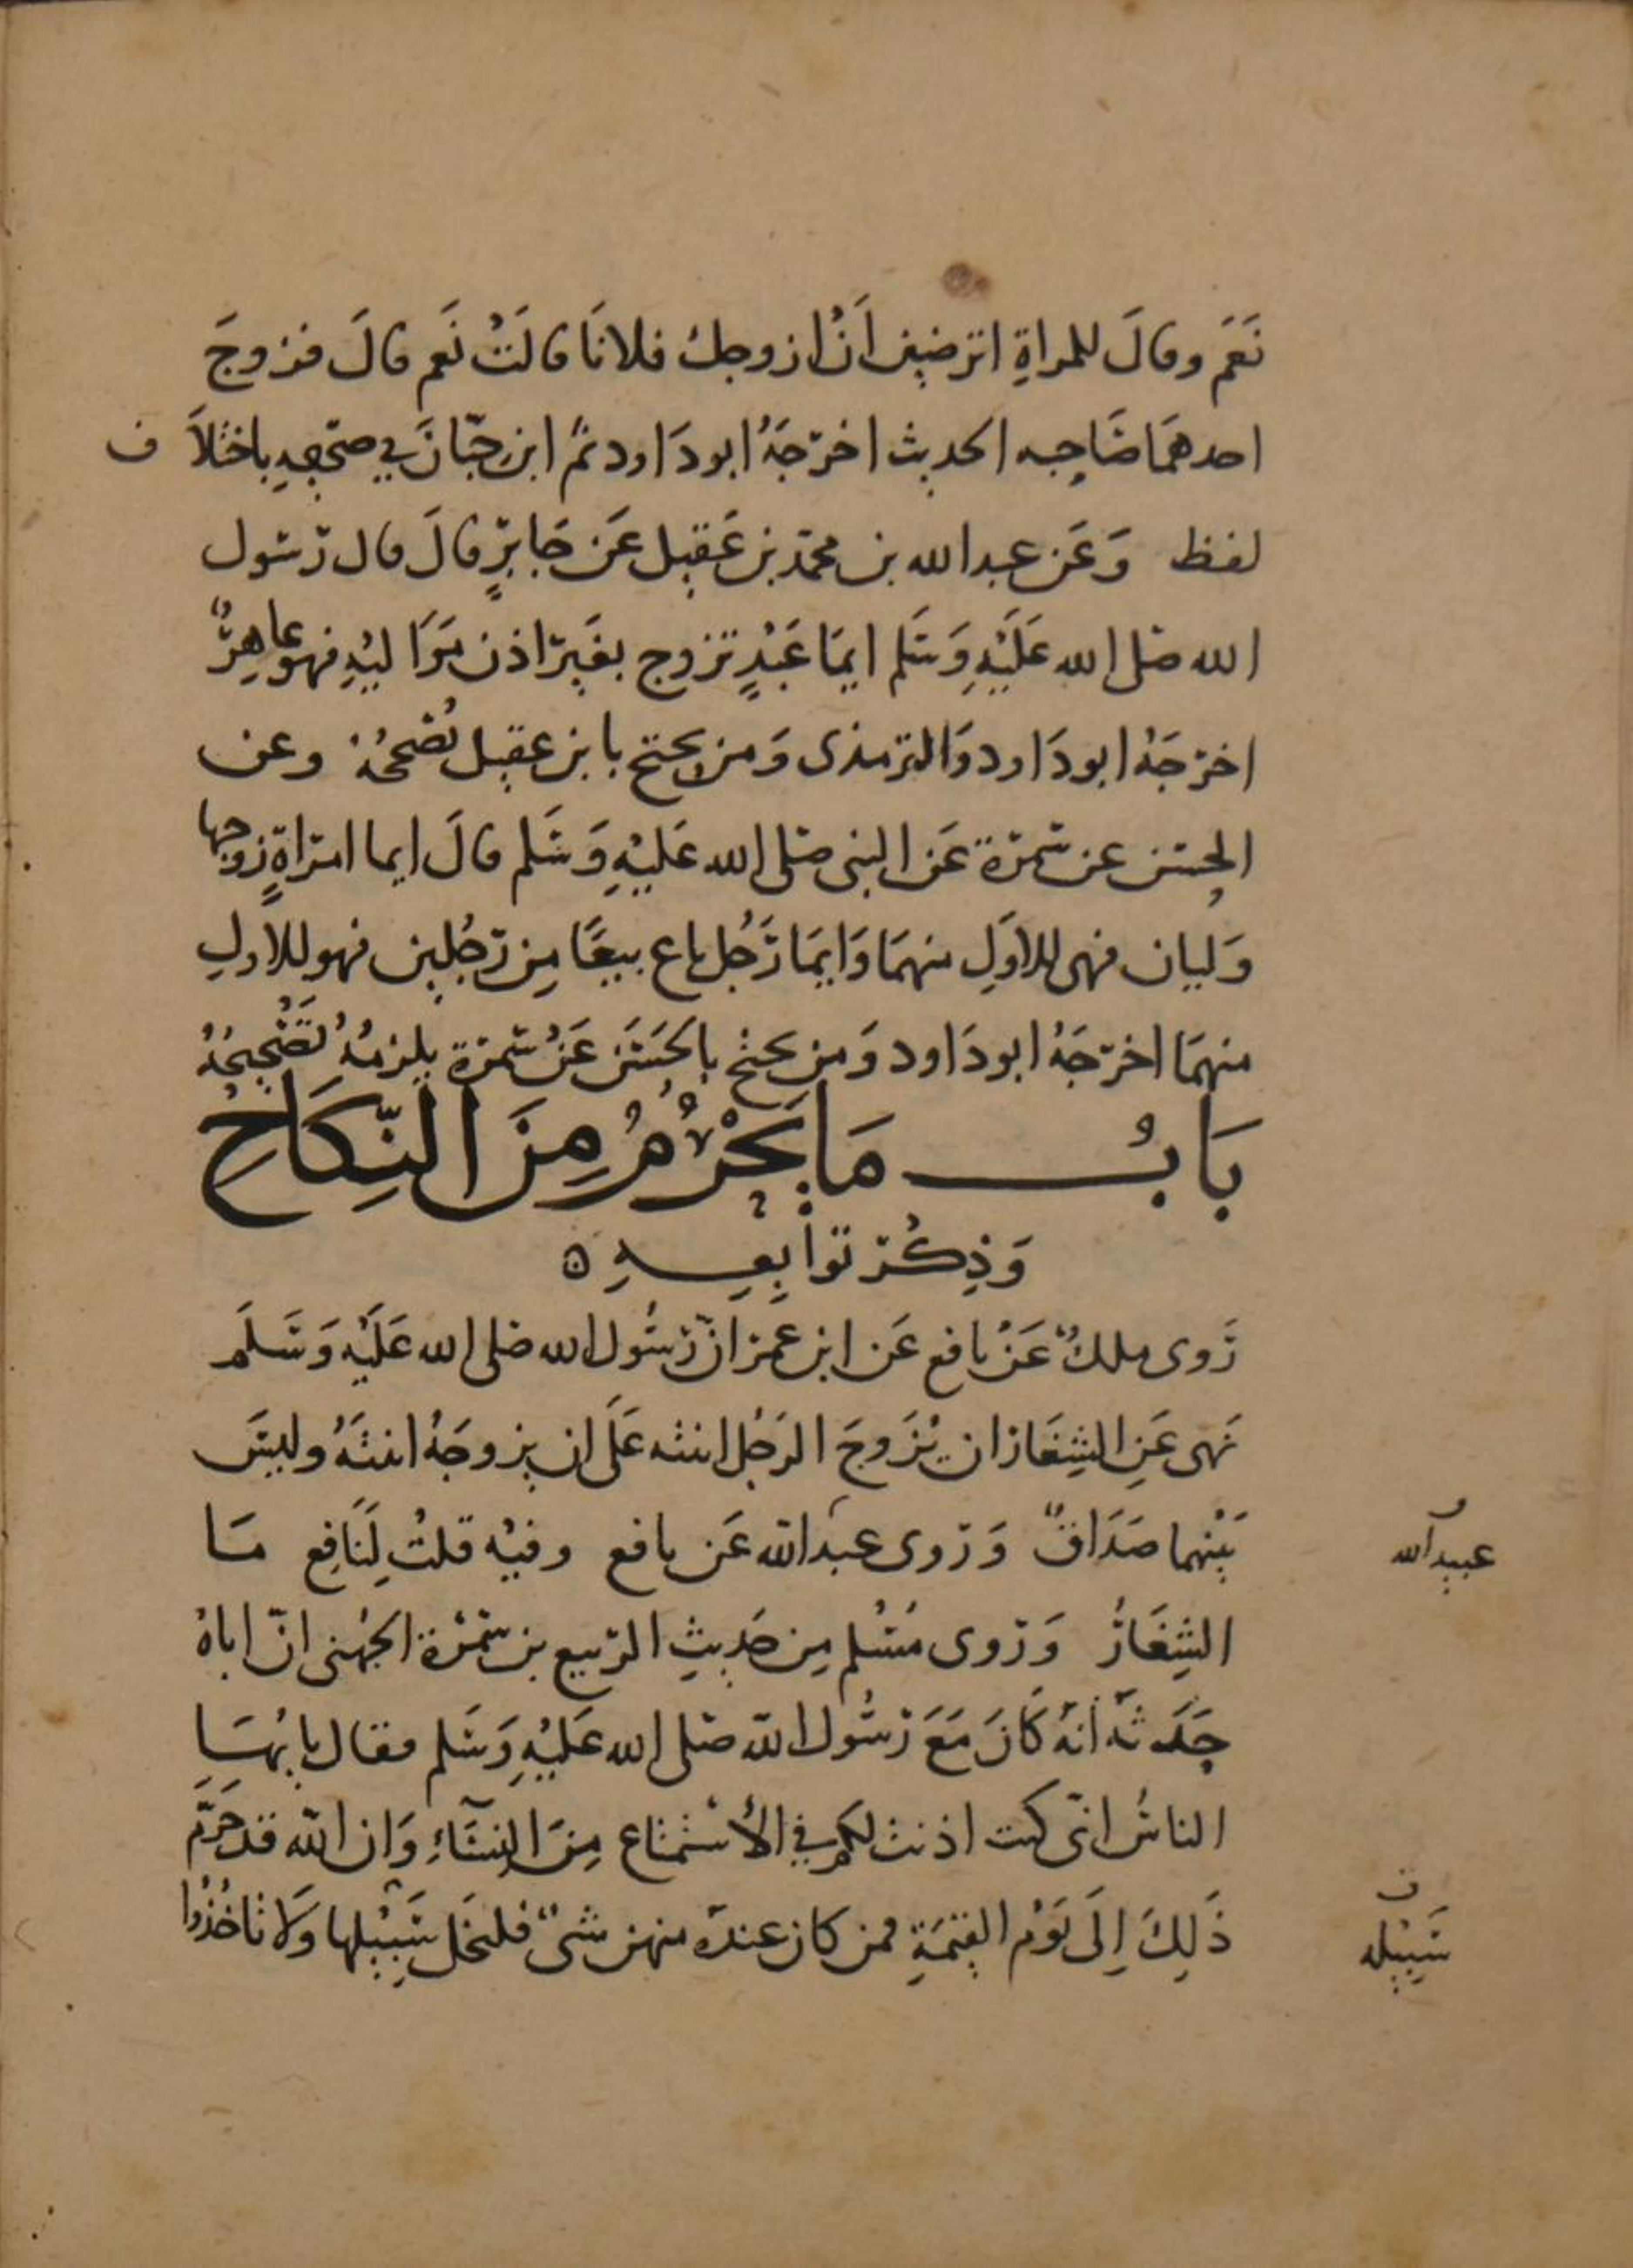 نَعَم وقالَ للمراةِ اترضين اَنْ ازوجك فلانًا قالَتْ نَعم قالَ فزوجَ
احدهمَا صَاحِبه الحديث اخرَجَهُ ابودَاود ثمَّ ابن حِبّانَ في صَحيحِهِ باختلَا ف
لفظ وَعَن عبدالله بن محمّد بن عَقِيل عَن جَابرٍ قالَ قال رَسُول
الله صَلى الله عَلَيْهِ وَسَلم ايمَا عَبْدٍ تزوج بغَير اذن مَوَاليْهِ فهو عاهِرٌ
اخرَجَهُ ابودَاود وَالترمذى وَمن يحتج بابن عقيل يُصَححُهُ وعن
الحسَن عن سَمرَة عَن النبى صَلى الله عَليْهِ وَسَلم قالَ ايما امرَاةٍ زوجها
وَليان فهى للاوَلِ منهمَا وَايمَا رَجُل باع بيعًا مِن رَجُلين فهو للاولِ
منهمَا اخرَجَهُ ابودَاود وَمن يحتج بالحَسَن عَنْ سَمرَة يلزمُهُ تَصْحِيحُهُ
بَابُ مَا يَحْرُمُ مِنَ النِّكَاحِ
وَذِكُر توابِعِهِ ه
رَوى ملكٌ عَنْ نافع عَن ابن عمرَ انّ رَسُول الله صَلى الله عَلَيْهِ وَسَلَم
نَهى عَنِ الشِغَار ان يُزَوجَ الرَجُل ابنته عَلَى ان يزوجَهُ ابنتَهُ وليسَ
بَيْنهما صَدَاقٌ وَرَوى عبدالله عَن نافع وفيْه قلتُ لِنَافِع مَا
عبيدالله
الشِغَارُ وَرَوى مُسْلم مِن حَديثِ الرَبيع بن سَمْرَة الجُهنى انّ اباهُ
حَدَثَهُ انهُ كَانَ مَعَ رَسُول الله صَلى الله عَليْهِ وَسَلم فقال يا يُهَا
الناسُ انّى كنت اذنت لكم في الاسْتمتاع مِنَ النِسَاءِ وَان الله قد حَرَمَ
ذَلِكَ اِلَى يَوْم القيمَةِ فمن كان عندَه منهن شىٌ فليخَل سَبِيْلها وَلا تاخُذُوا
سَبِيْله